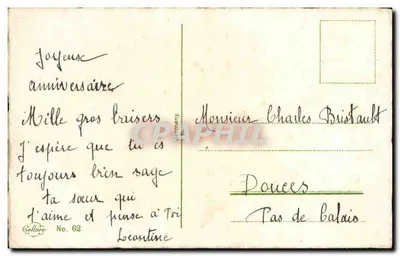 Joyeux
anniversaire
Mille gros baisers
J'espère que tu es
toujours bien sage
ta sœur qui
t'aime et pense à Toi
Leontine
No. 62
Monsieur Charles Bristault
Douces
Pas de Calais
CARTHAPHILIA